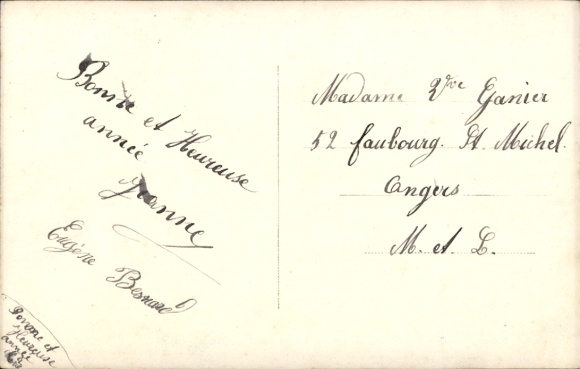 Bonne et Heureuse
année
Jeanne
Eugène Besnard
Bonne et
Heureuse
année
Madame Vve Ganier
52 faubourg. St. Michel.
Angers
M. et L.